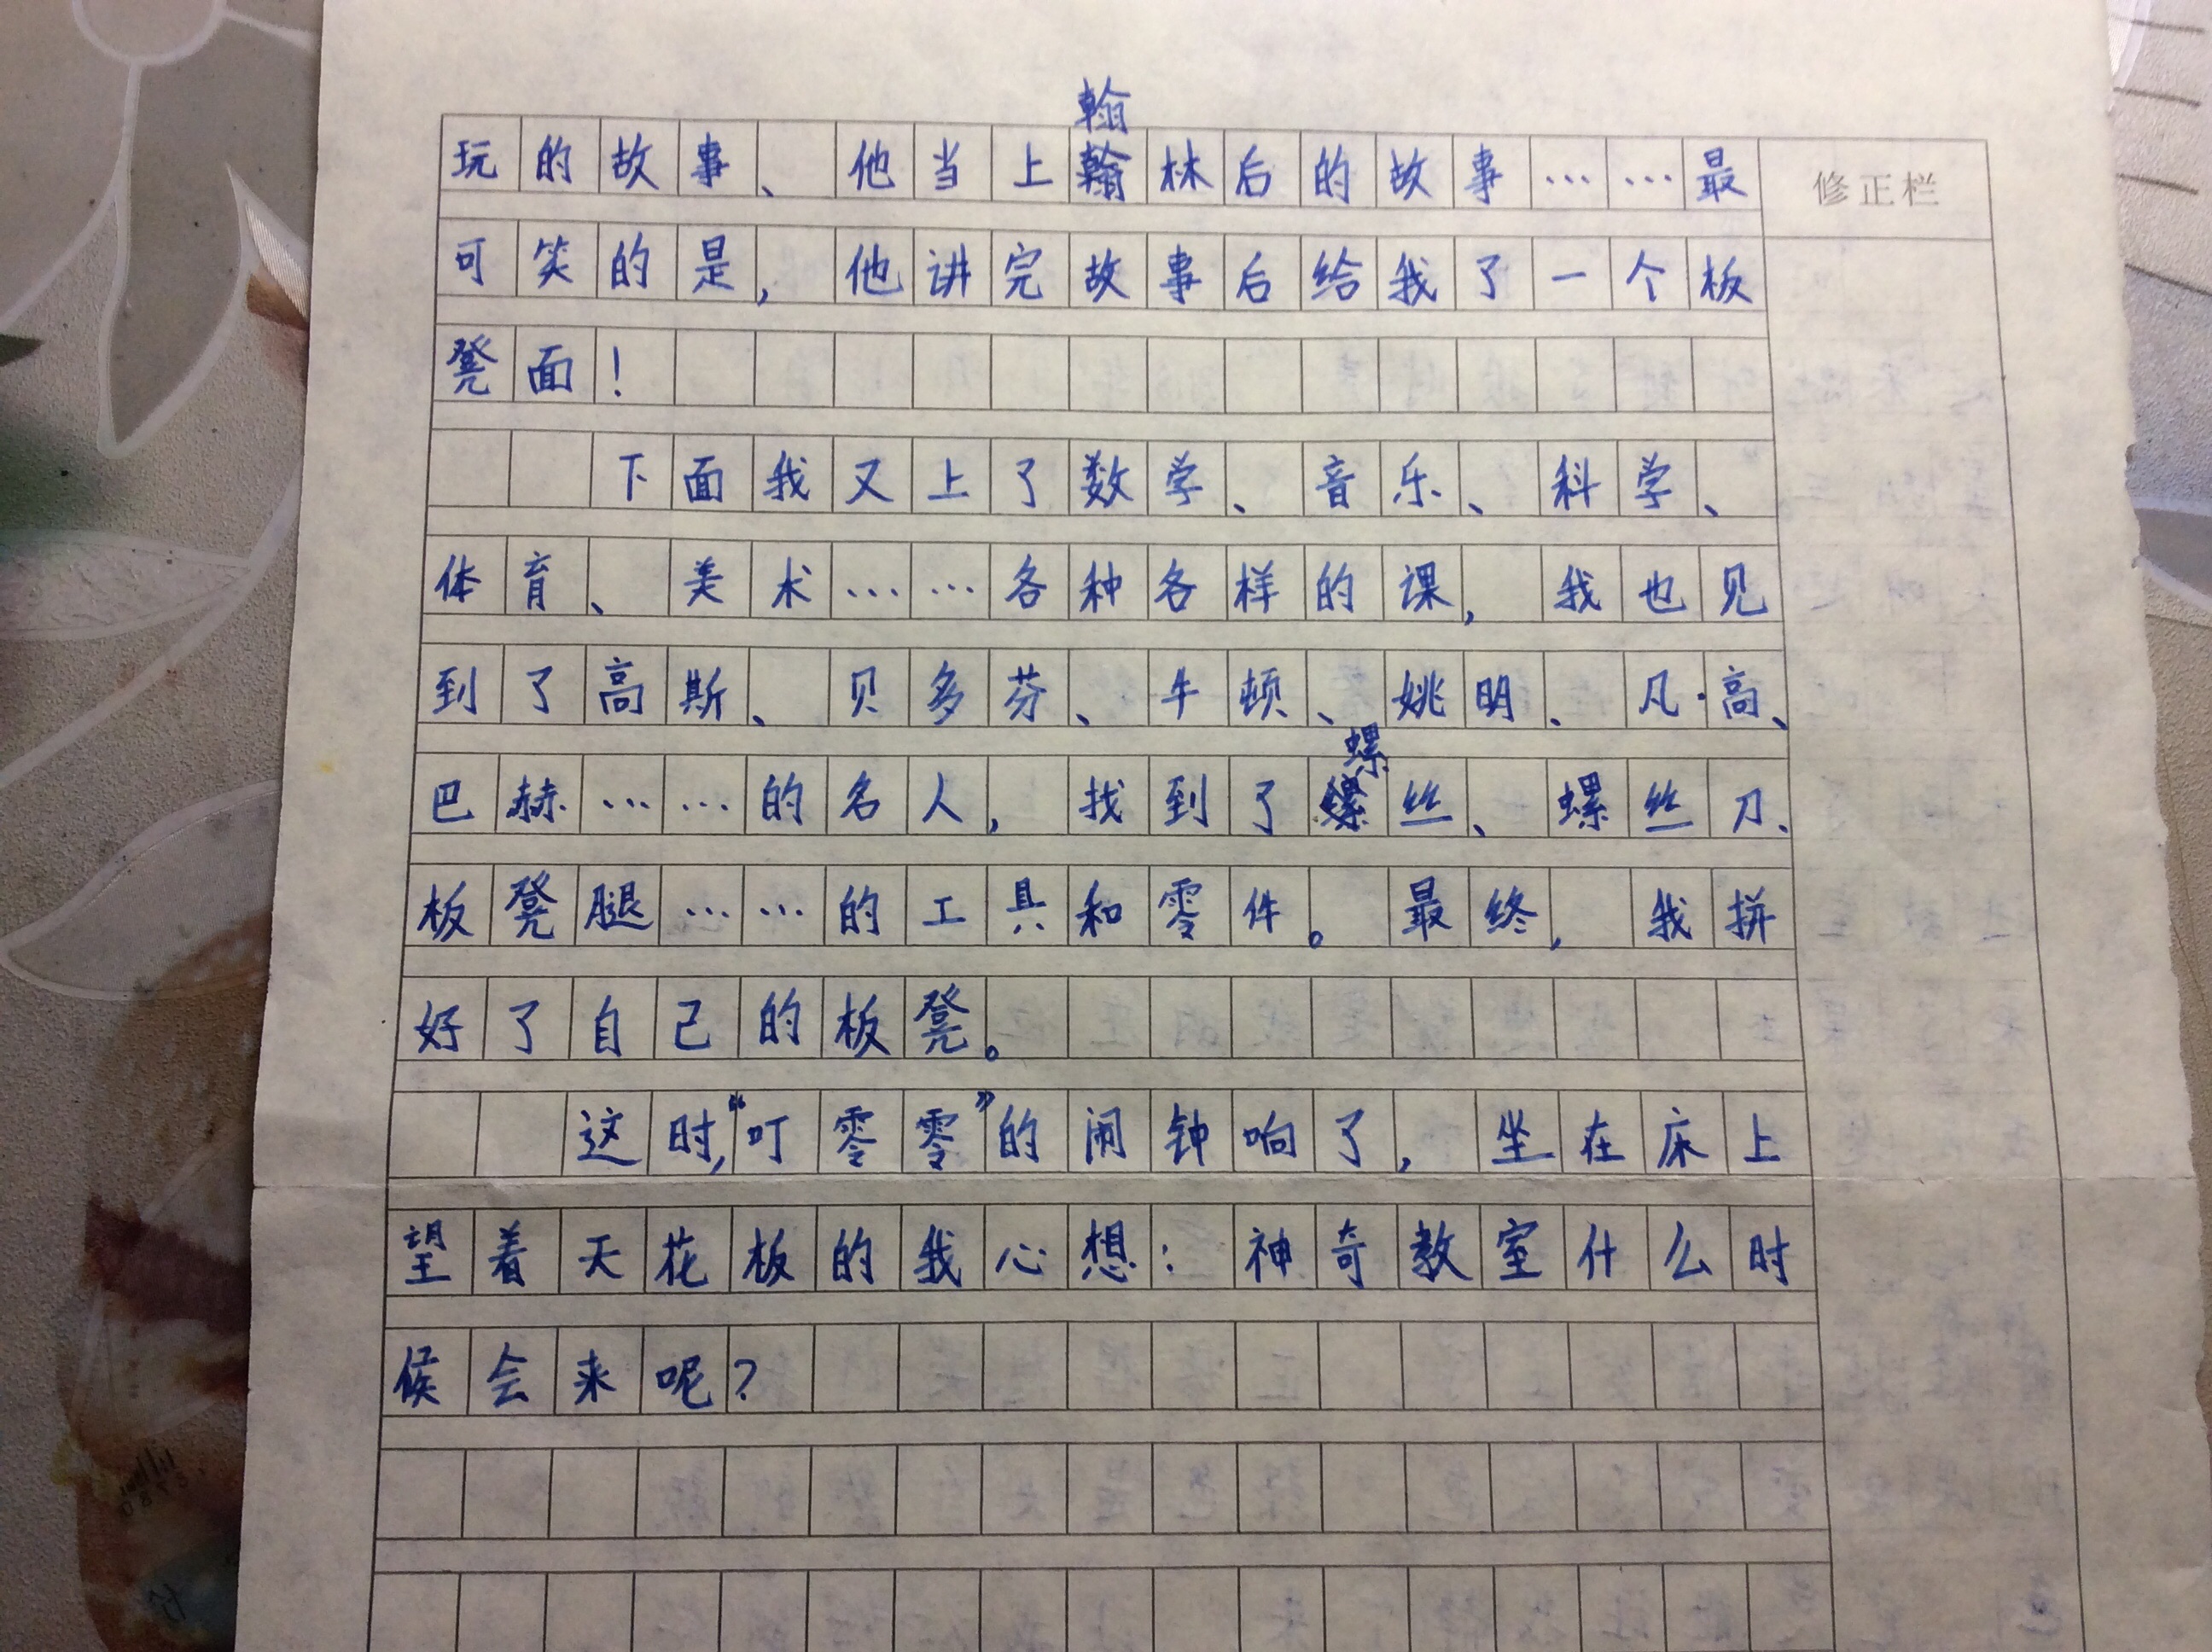 翰
玩的故事、他当上翰林后的故事……最
修正栏
可笑的是，他讲完故事后给我了一个板
凳面！
下面我又上了数学、音乐、科学、
体育、美术……各种各样的课，我也见
到了高斯、贝多芬、牛顿、姚明、凡·高、
螺
巴赫……的名人，找到了螺丝、螺丝刀、
板凳腿……的工具和零件。最终，我拼
好了自己的板凳。
这时，“叮零零”的闹钟响了，坐在床上
望着天花板的我心想：神奇教室什么时
候会来呢？